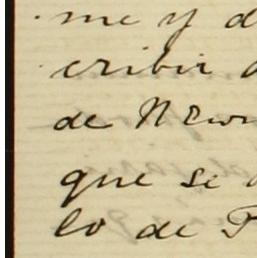 me y d
cribir
de New
que se
lo de